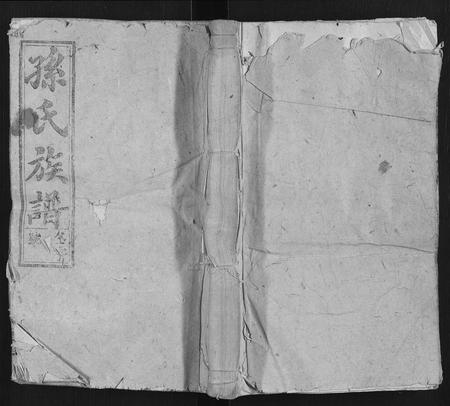 孫氏族譜